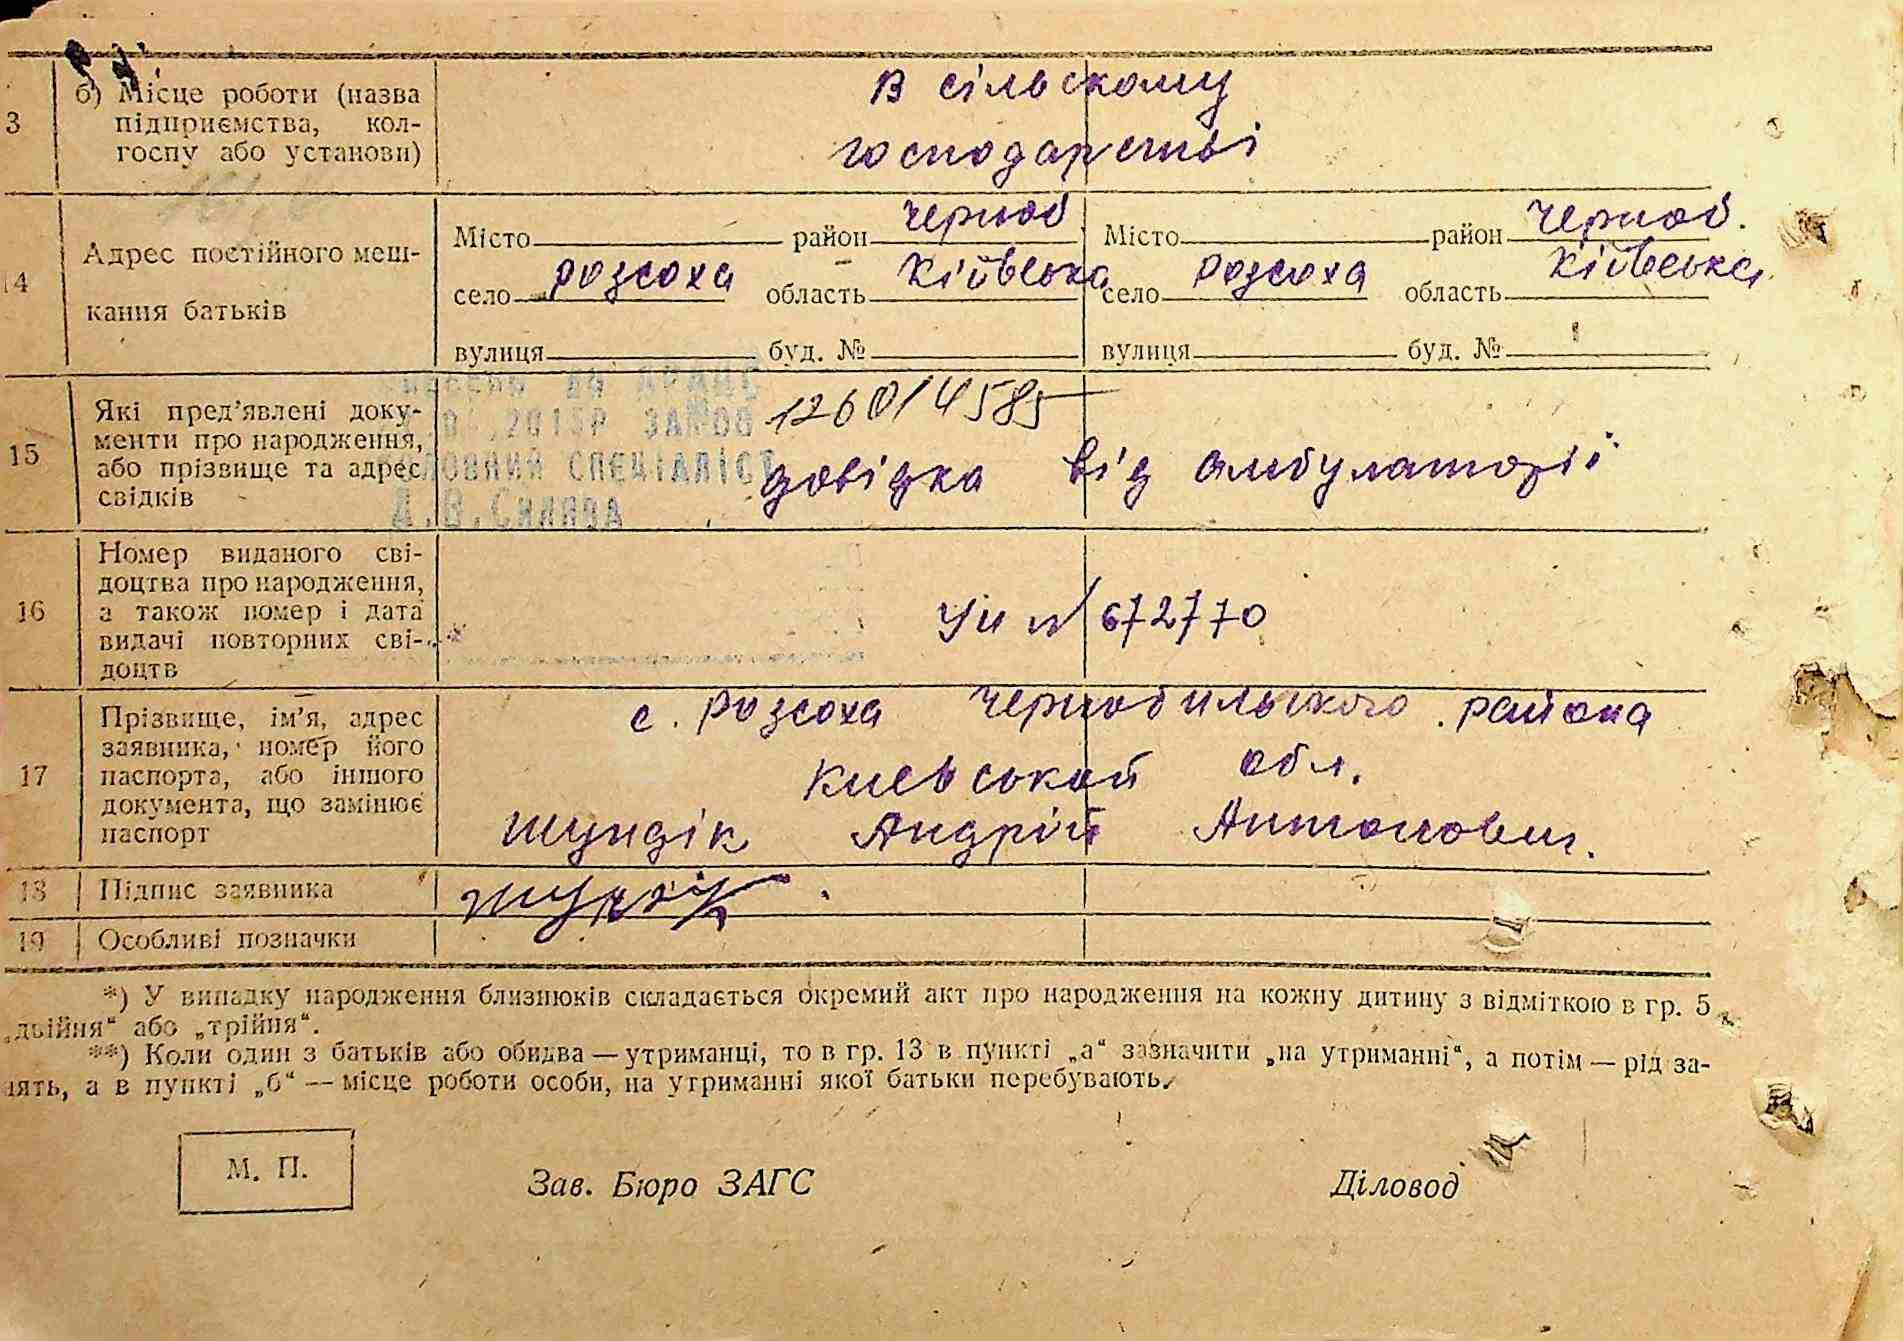 3
б) Місце роботи (назва
підприємства, кол-
госпу або установи)
в сільскому
господарстві
14
Адрес постійного меш-
кання батьків
Місто район Черноб
село Розсоха область Кіївська
вулиця буд. №
Місто район Черноб.
село Розсоха область Кіївська
вулиця буд. №
15
Які пред’явлені доку-
менти про народження,
або прізвище та адрес
свідків
2015Р
СПЕЦІАЛІСТ
126014585
довідка від амбулаторіі
16
Номер виданого сві-
доцтва про народження,
а також номер і дата
видачі повторних сві-
доцтв
N 672770
17
Прізвище, ім’я, адрес
заявника, номер його
паспорта, або іншого
документа, що замінює
паспорт
с. Розсоха Чернобильского района
Киевськой обл.
Шундік Андрій Антонович.
18
Підпис заявника
Шундік
19
Особливі позначки
*) У випадку народження близнюків складається окремий акт про народження на кожну дитину з відміткою в гр. 5
„двійня“ або „трійня“.
**) Коли один з батьків або обидва — утриманці, то в гр. 13 в пункті „а“ зазначити „на утриманні“, а потім — рід за-
нять, а в пункті „б“ — місце роботи особи, на утриманні якої батьки перебувають.
М. П.
Зав. Бюро ЗАГС
Діловод